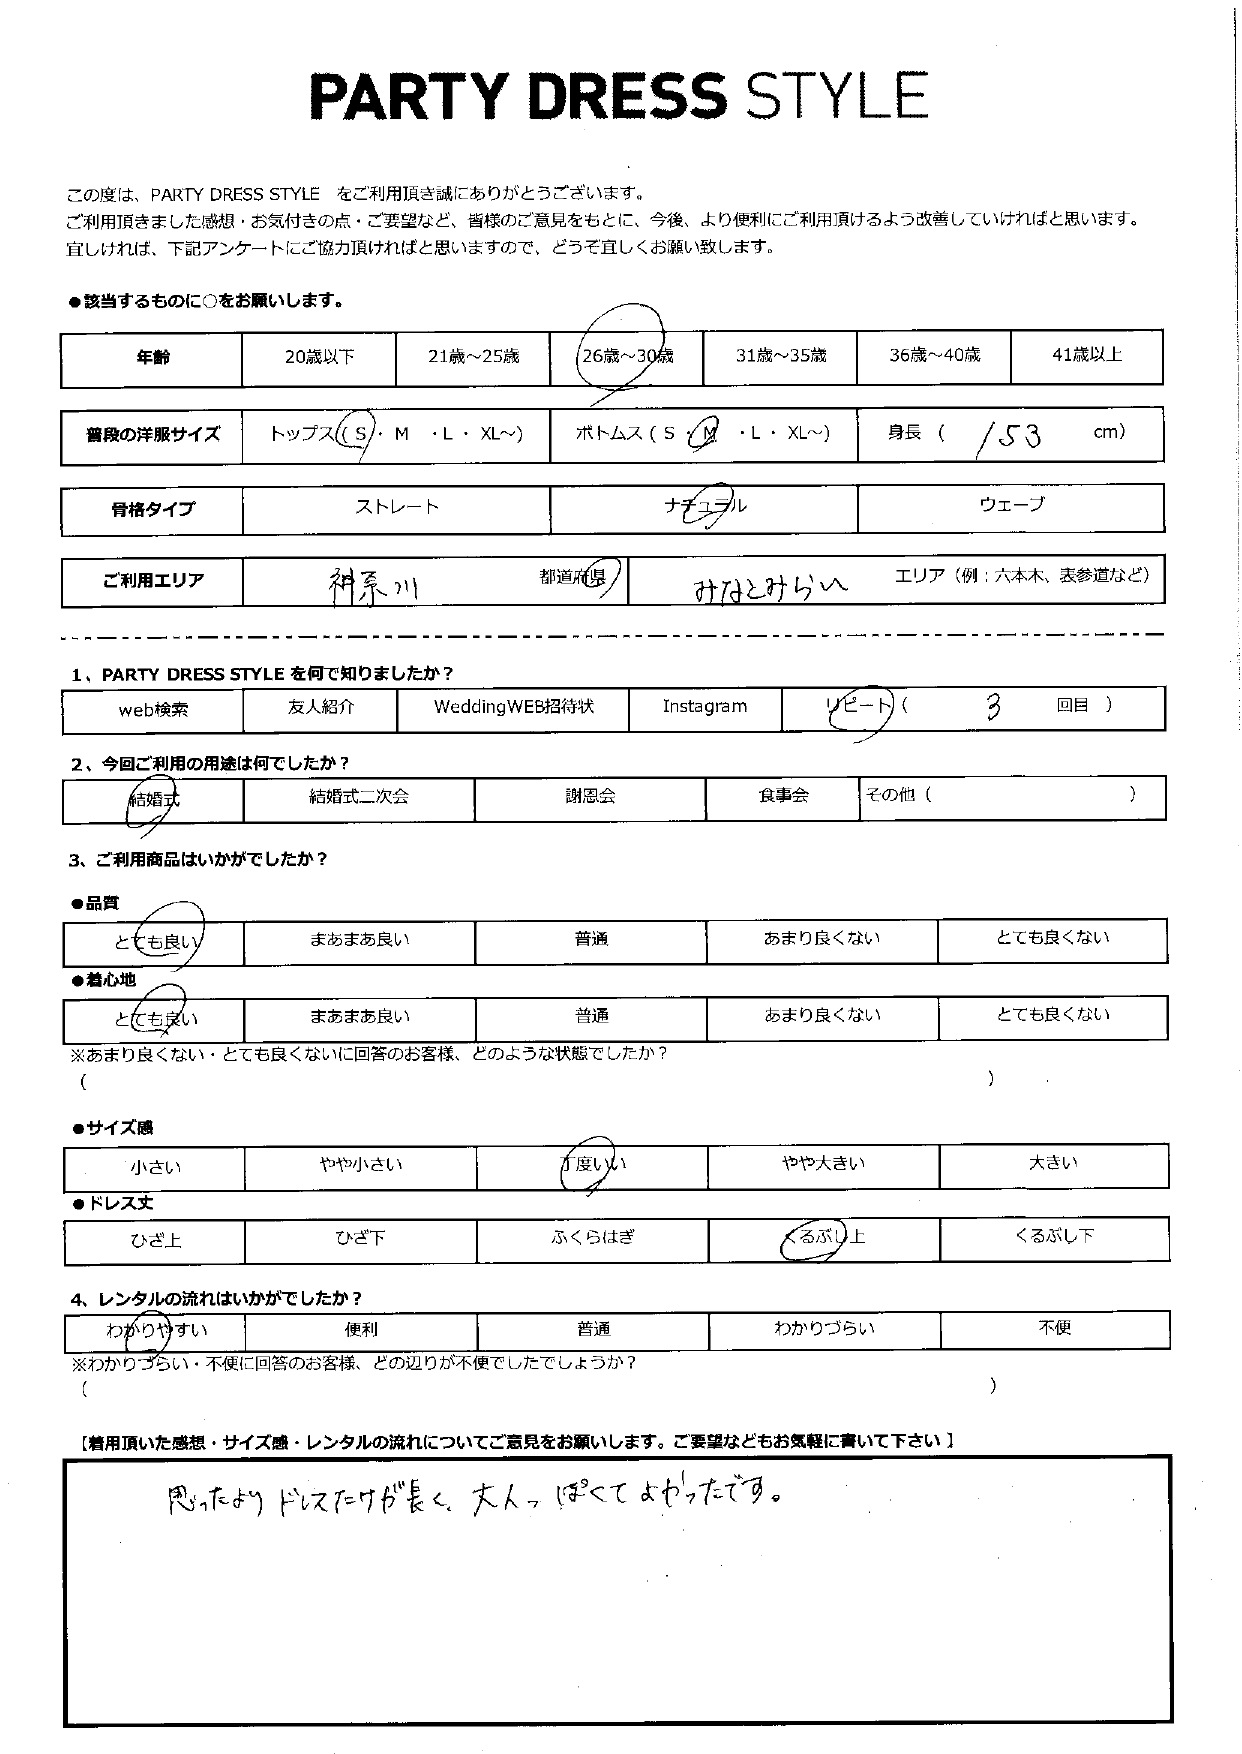 PARTY DRESS STYLE
この度は、PARTY DRESS STYLE をご利用頂き誠にありがとうございます。
ご利用頂きました感想・お気付きの点・ご要望など、皆様のご意見をもとに、今後、より便利にご利用頂けるよう改善していければと思います。
宜しければ、下記アンケートにご協力頂ければと思いますので、どうぞ宜しくお願い致します。
●該当するものに○をお願いします。
年齢 20歳以下 21歳～25歳 26歳～30歳 31歳～35歳 36歳～40歳 41歳以上
普段の洋服サイズ トップス ( S ・ M ・L ・ XL～) ボトムス ( S ・ M ・L ・ XL～) 身長 ( 153 cm)
骨格タイプ ストレート ナチュラル ウェーブ
ご利用エリア 神奈川 都道府県 みなとみらい エリア（例：六本木、表参道など）
1、PARTY DRESS STYLE を何で知りましたか？
web検索 友人紹介 WeddingWEB招待状 Instagram リピート ( 3 回目 )
2、今回ご利用の用途は何でしたか？
結婚式 結婚式二次会 謝恩会 食事会 その他 ( )
3、ご利用商品はいかがでしたか？
●品質
とても良い まあまあ良い 普通 あまり良くない とても良くない
●着心地
とても良い まあまあ良い 普通 あまり良くない とても良くない
※あまり良くない・とても良くないに回答のお客様、どのような状態でしたか？
( )
●サイズ感
小さい やや小さい 丁度いい やや大きい 大きい
●ドレス丈
ひざ上 ひざ下 ふくらはぎ くるぶし上 くるぶし下
4、レンタルの流れはいかがでしたか？
わかりやすい 便利 普通 わかりづらい 不便
※わかりづらい・不便に回答のお客様、どの辺りが不便でしたでしょうか？
( )
【着用頂いた感想・サイズ感・レンタルの流れについてご意見をお願いします。ご要望などもお気軽に書いて下さい】
思ったよりドレスたけが長く、大人っぽくてよかったです。